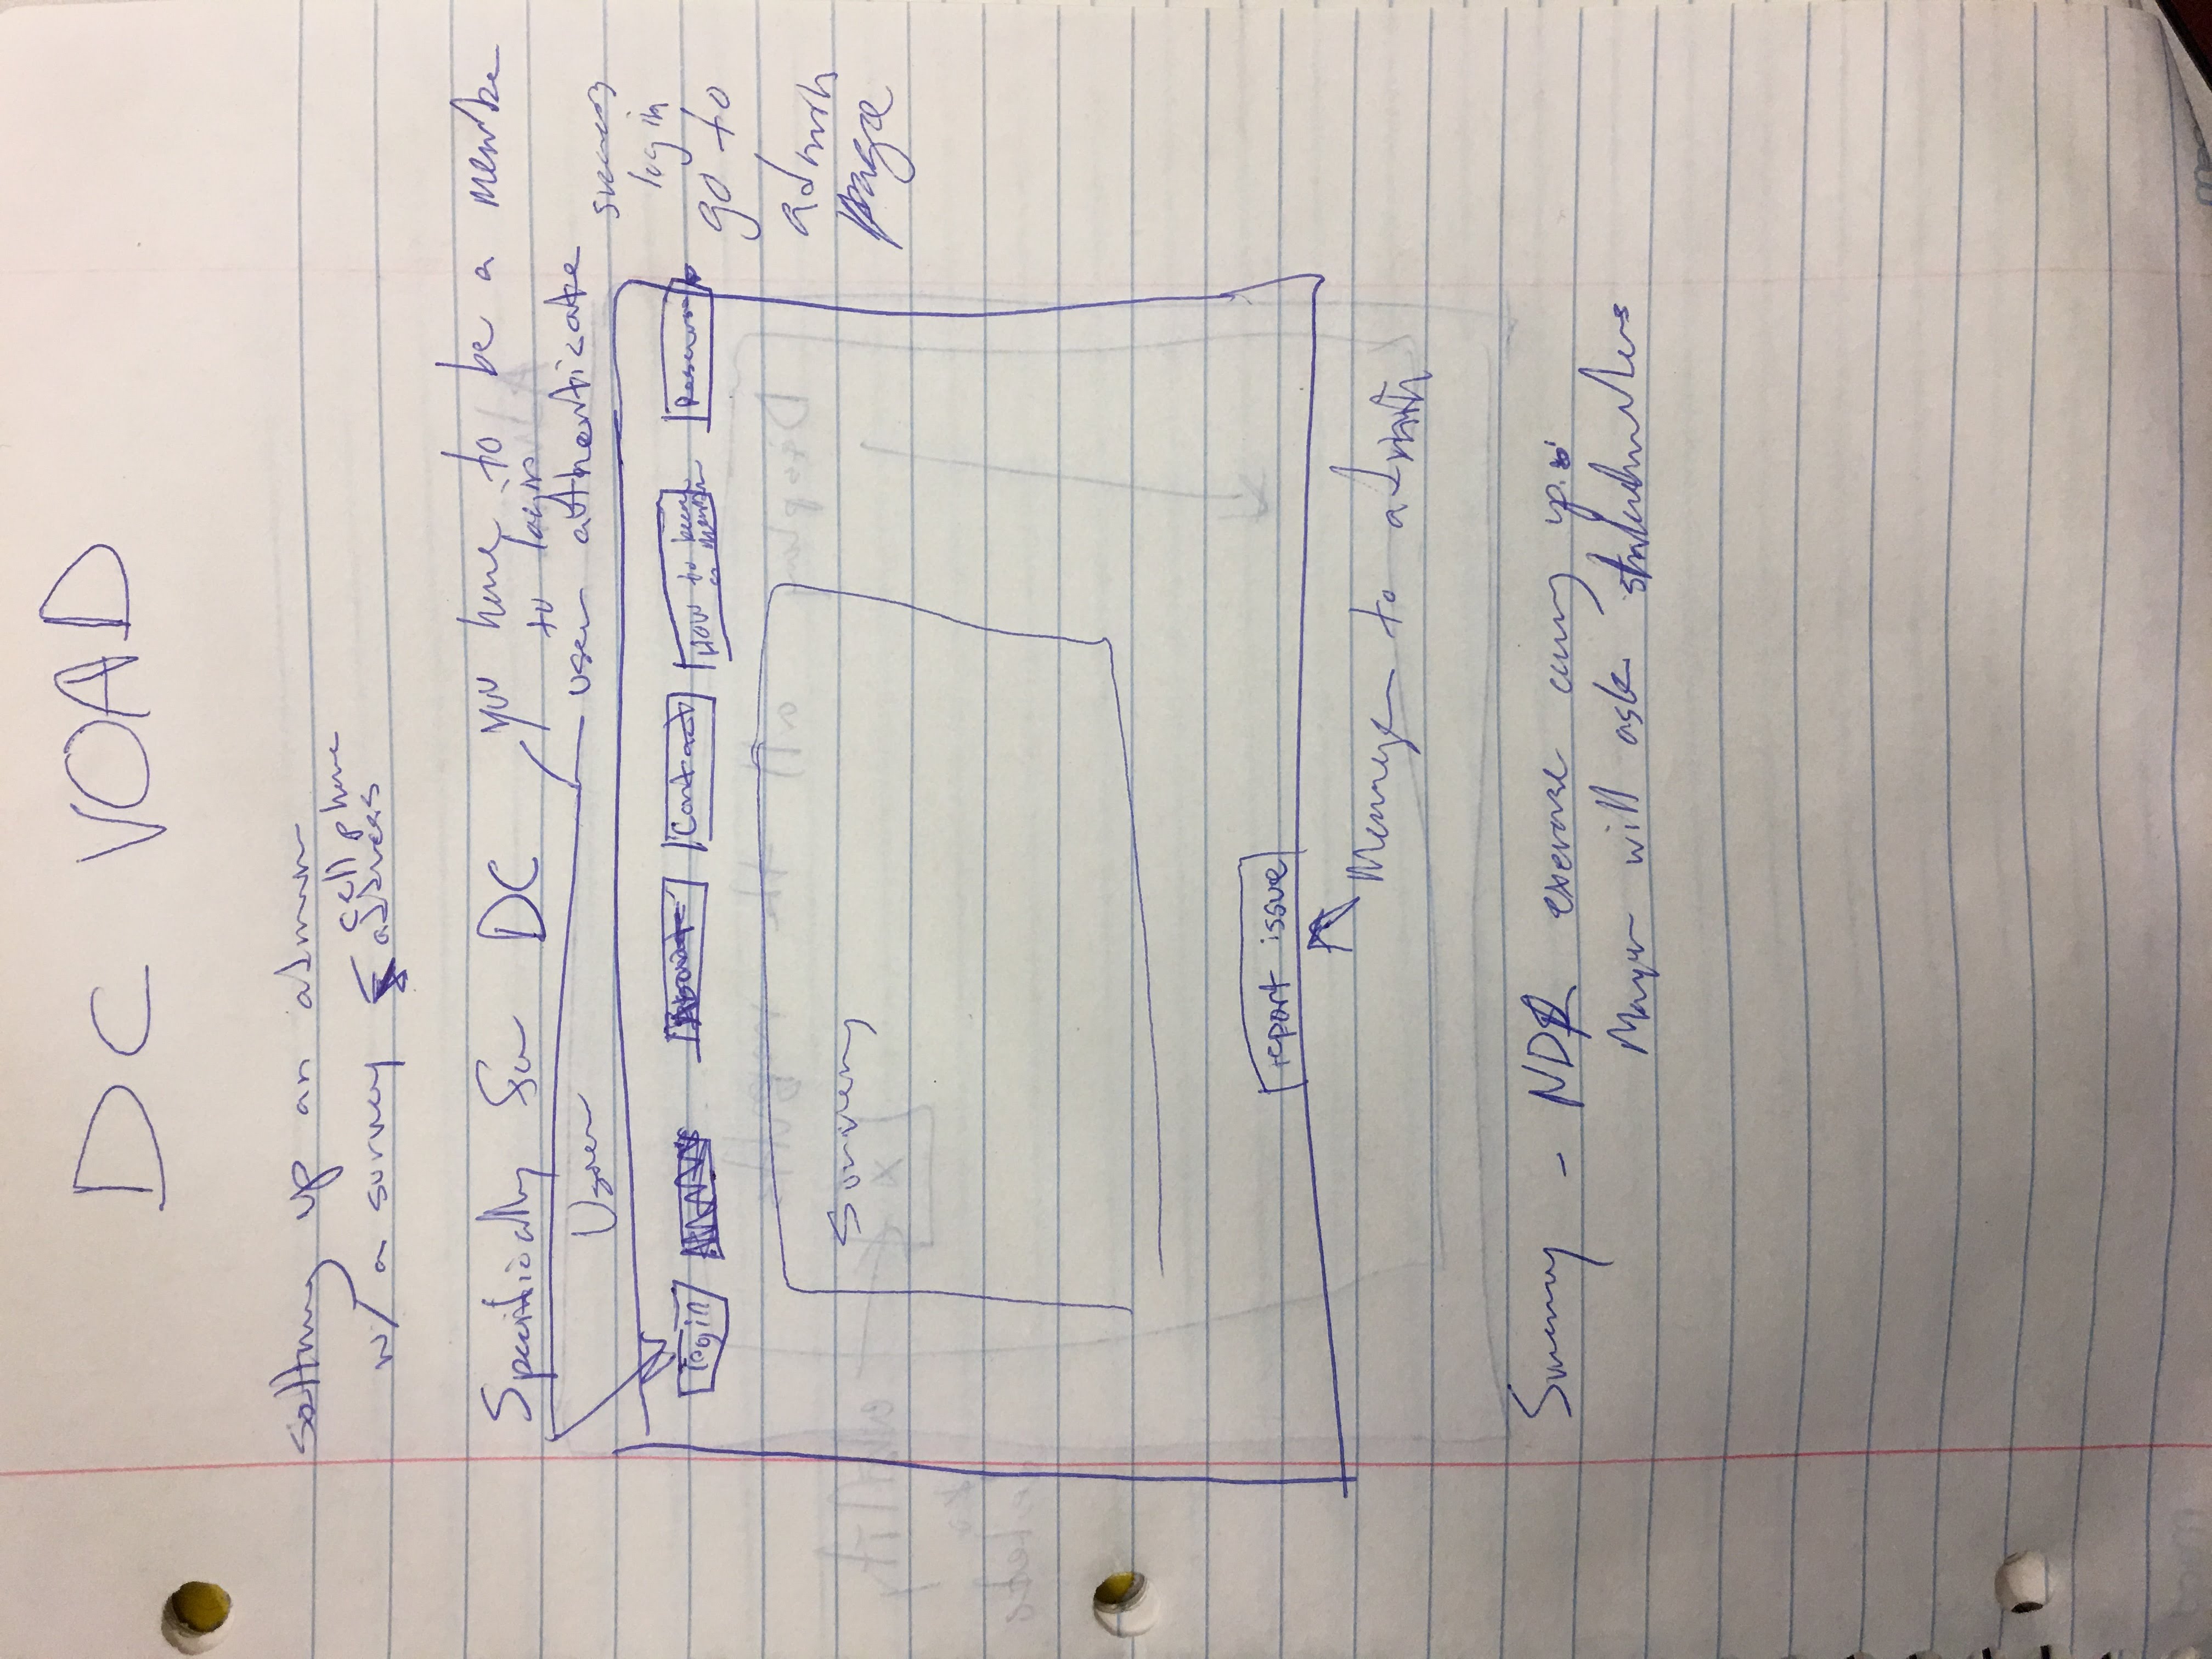 DC VOAD
setting up an admin
w/ a survey
cell phone
address
Specifically for DC
you have to be a member
to login
User
user authenticate
login
About
Contact
How to become
a member
Resources
login
go to
admin
page
Survey
report issue
Message to admin
Survey - NDR exercise coming up.
Mayor will ask stakeholders